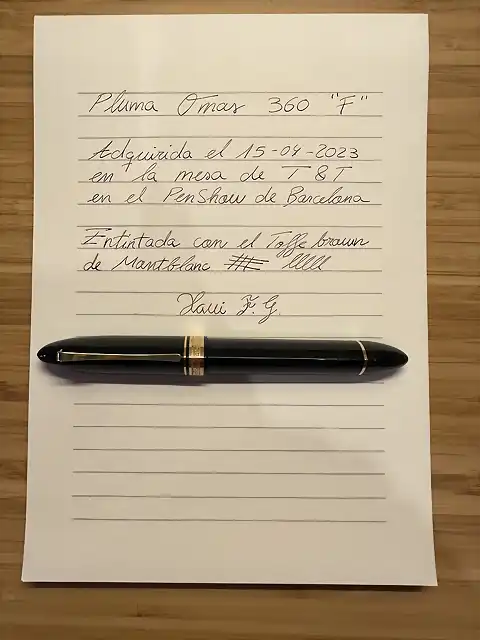 Pluma Omas 360 "F"
Adquirida el 15-04-2023
en la mesa de T & T
en el PenShow de Barcelona
Entintada con el Toffe brown
de Montblanc
Xavi F. G.